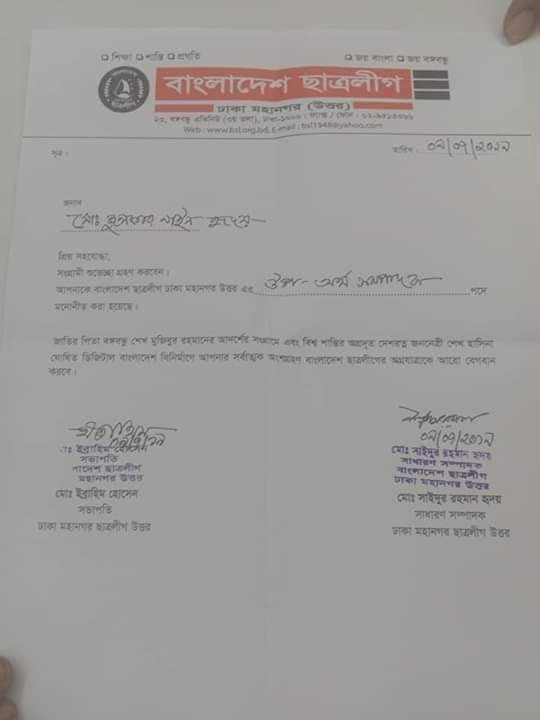 ❑ শিক্ষা ❑ শান্তি ❑ প্রগতি
❑ জয় বাংলা ❑ জয় বঙ্গবন্ধু
বাংলাদেশ ছাত্রলীগ
ঢাকা মহানগর (উত্তর)
২৩, বঙ্গবন্ধু এভিনিউ (৩য় তলা), ঢাকা-১০০০
Web : www.bsl.org.bd, E-mail : bsl1948@yahoo.com
সূত্র :
তারিখ :
জনাব
মোঃ
প্রিয় সহযোদ্ধা,
সংগ্রামী শুভেচ্ছা গ্রহণ করবেন।
আপনাকে বাংলাদেশ ছাত্রলীগ ঢাকা মহানগর উত্তর এর উপ-অর্থ সম্পাদক পদে
মনোনীত করা হয়েছে।
জাতির পিতা বঙ্গবন্ধু শেখ মুজিবুর রহমানের আদর্শের সংগ্রামে এবং বিশ্ব শান্তির অগ্রদূত দেশরত্ন জননেত্রী শেখ হাসিনা
ঘোষিত ডিজিটাল বাংলাদেশ বিনির্মাণে আপনার সর্বাত্মক অংশগ্রহণ বাংলাদেশ ছাত্রলীগের অগ্রযাত্রাকে আরো বেগবান
করবে।
মোঃ ইব্রাহিম হোসেন
সভাপতি
বাংলাদেশ ছাত্রলীগ
মহানগর উত্তর
মোঃ ইব্রাহিম হোসেন
সভাপতি
ঢাকা মহানগর ছাত্রলীগ উত্তর
মোঃ সাইদুর রহমান হৃদয়
সাধারণ সম্পাদক
বাংলাদেশ ছাত্রলীগ
ঢাকা মহানগর উত্তর
মোঃ সাইদুর রহমান হৃদয়
সাধারণ সম্পাদক
ঢাকা মহানগর ছাত্রলীগ উত্তর